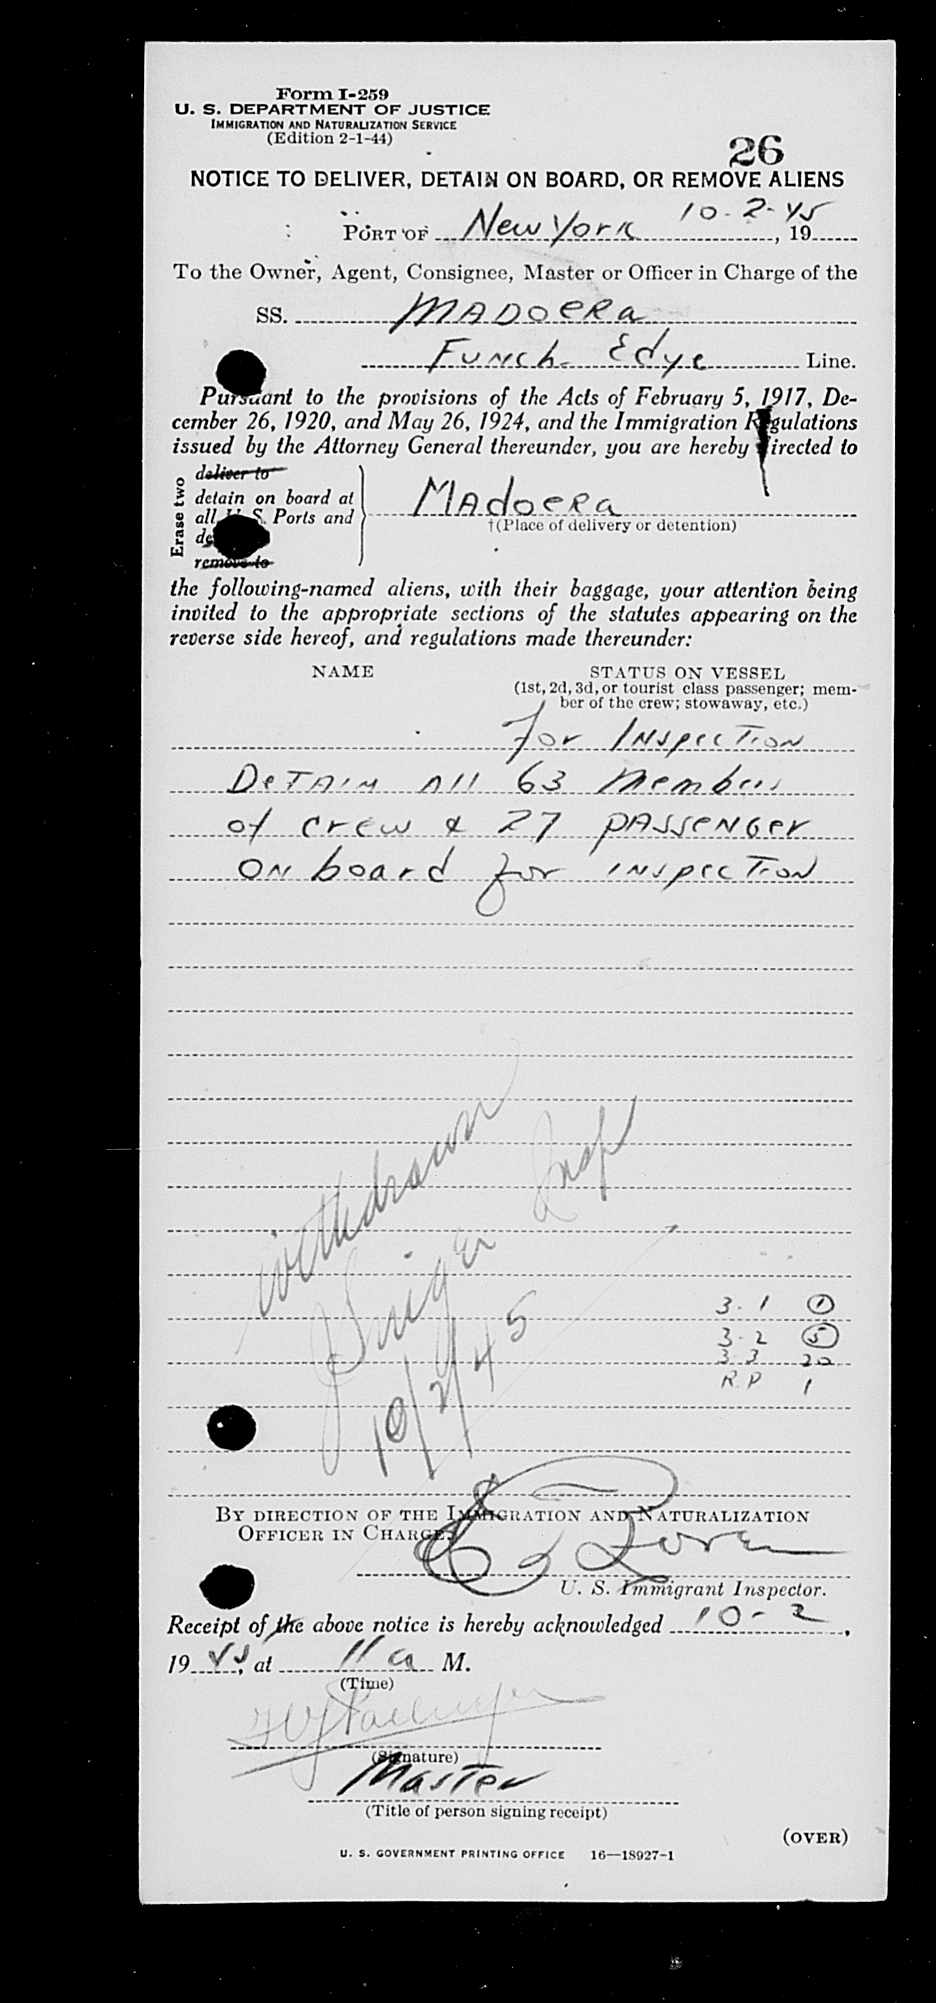 Form I-259
U. S. DEPARTMENT OF JUSTICE
IMMIGRATION AND NATURALIZATION SERVICE
(Edition 2-1-44)
26
NOTICE TO DELIVER, DETAIN ON BOARD, OR REMOVE ALIENS
PORT OF New York 10-2-45, 19
To the Owner, Agent, Consignee, Master or Officer in Charge of the
SS. MADOERA
Funch Edye Line.
Pursuant to the provisions of the Acts of February 5, 1917, De-
cember 26, 1920, and May 26, 1924, and the Immigration Regulations
issued by the Attorney General thereunder, you are hereby directed to
Erase two
deliver to
detain on board at
all U. S. Ports and
remove to
MADOERA
†(Place of delivery or detention)
the following-named aliens, with their baggage, your attention being
invited to the appropriate sections of the statutes appearing on the
reverse side hereof, and regulations made thereunder:
NAME STATUS ON VESSEL
(1st, 2d, 3d, or tourist class passenger; mem-
ber of the crew; stowaway, etc.)
for Inspection
Detain all 63 members
of crew & 27 passenger
on board for inspection
withdrawn
Insp
10/2/45
3-1 1
3-2 5
3-3 20
R.P 1
BY DIRECTION OF THE IMMIGRATION AND NATURALIZATION
OFFICER IN CHARGE:
U. S. Immigrant Inspector.
Receipt of the above notice is hereby acknowledged 10-2,
19 45, at 11 a M.
(Time)
(Signature)
Master
(Title of person signing receipt)
(OVER)
U. S. GOVERNMENT PRINTING OFFICE 16—18927-1